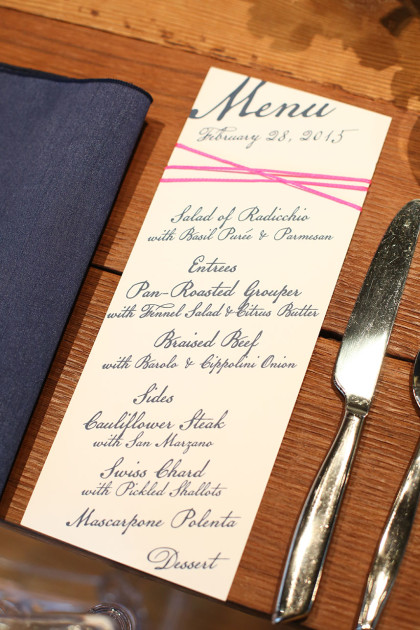 Menu
February 28, 2015
Salad of Radicchio
with Basil Purée & Parmesan
Entrees
Pan-Roasted Grouper
with Fennel Salad & Citrus Butter
Braised Beef
with Barolo & Cippolini Onion
Sides
Cauliflower Steak
with San Marzano
Swiss Chard
with Pickled Shallots
Mascarpone Polenta
Dessert